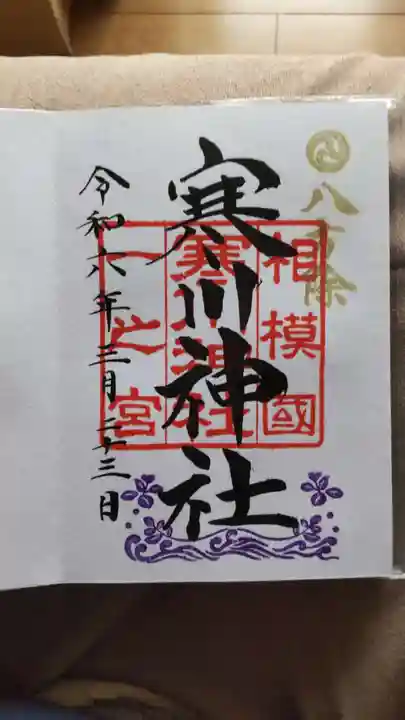 八方除
相模國
寒川神社
寒川神社
一之宮
令和六年三月二十三日